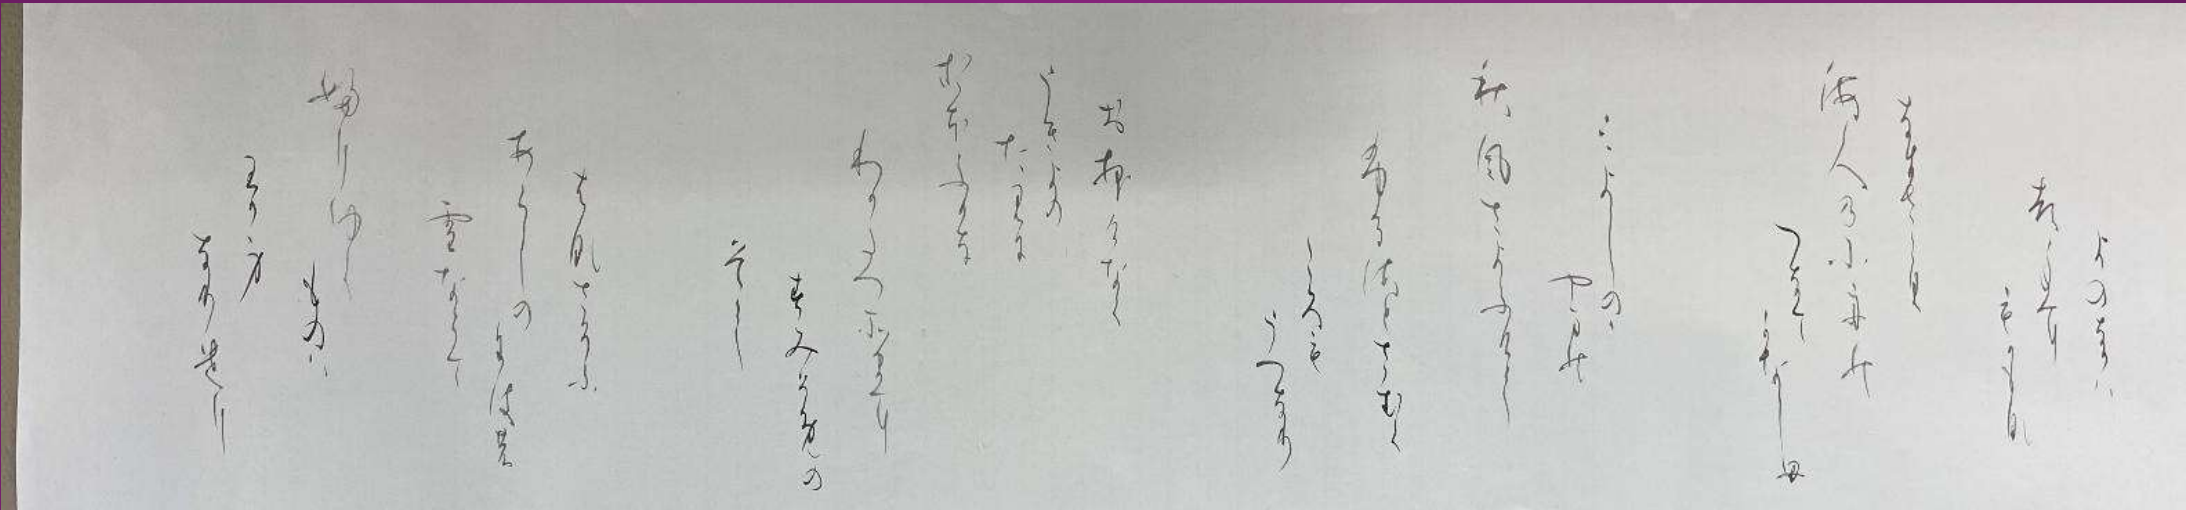 よのなかは
つねに
もかもな
なきさこく
海人の小舟の
つなて
かなしも
みよしのの
やまの
秋風さよふけて
ふるさとさむく
ころも
うつなり
おほけなく
うきよの
たみに
おほふかな
わかたつそまに
すみそめの
そて
はなさそふ
あらしの
にはの
雪ならて
ふりゆく
ものは
わか身
なりけり